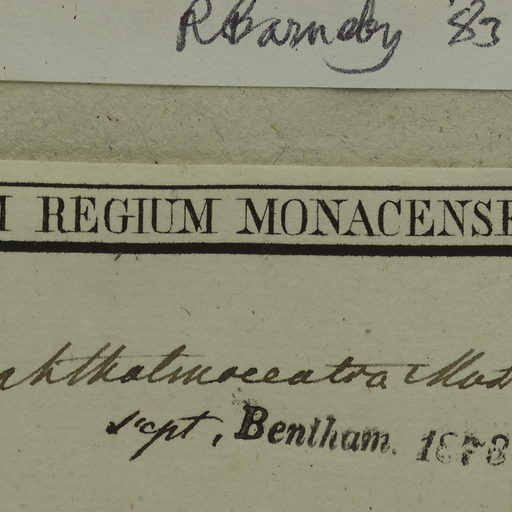 RBarneby '83
M REGIUM MONACENSE
ophthalmocentra Mart
scpt, Bentham. 1878